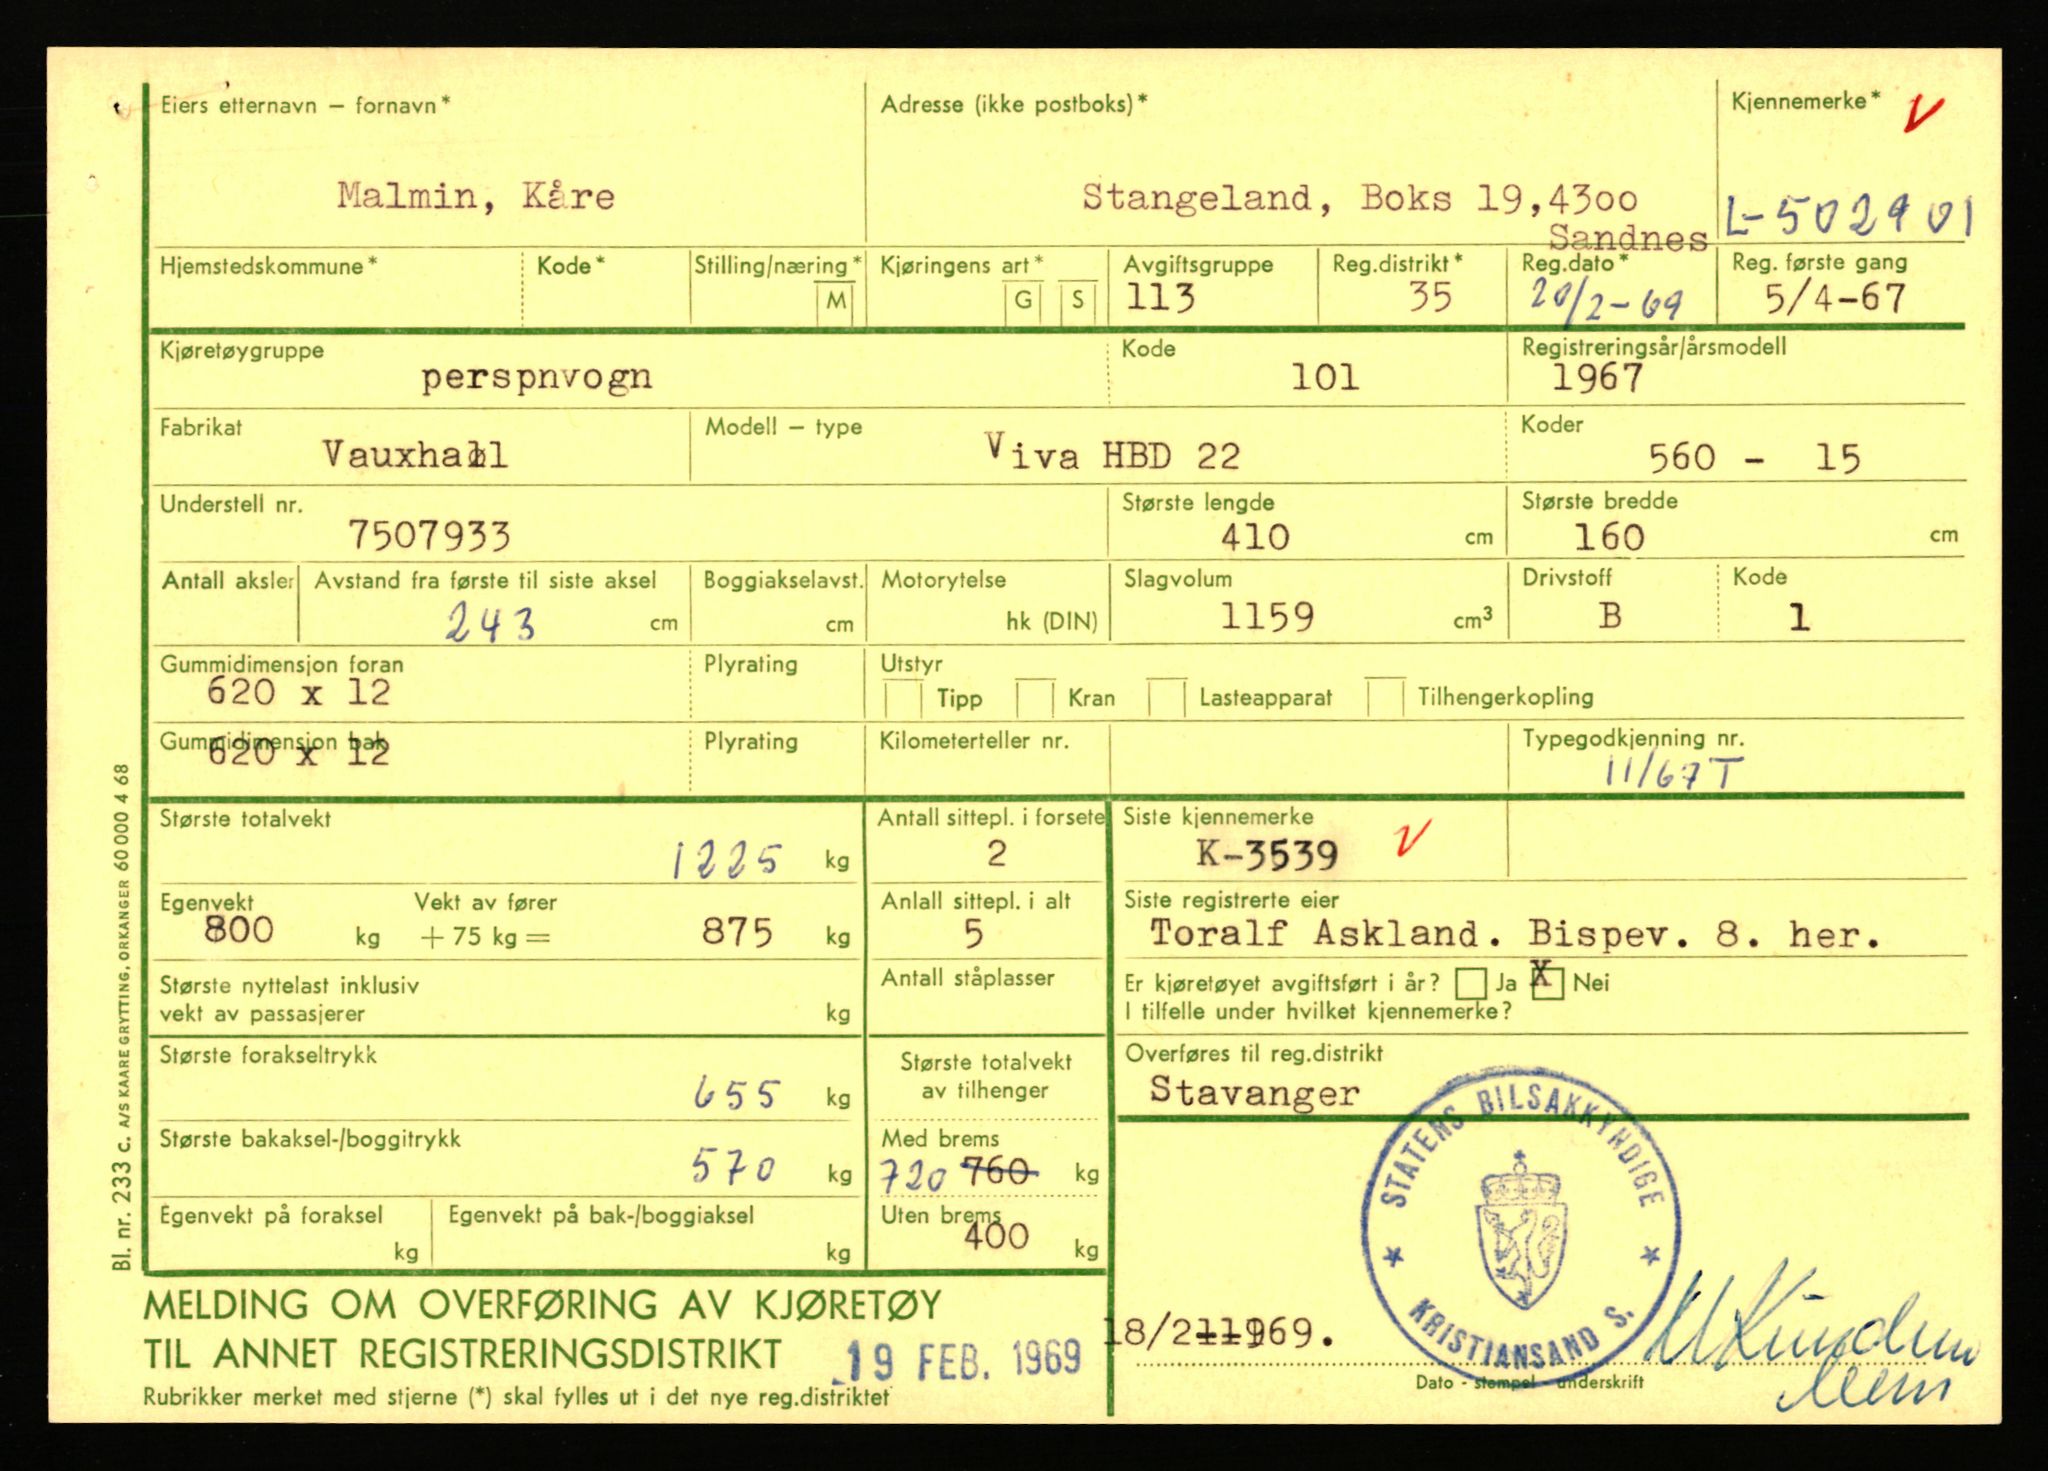 Eiers etternavn – fornavn*
Adresse (ikke postboks)*
Kjennemerke* V
Malmin, Kåre
Stangeland, Boks 19,4300
Sandnes
L-502901
Hjemstedskommune*
Kode*
Stilling/næring*
M
Kjøringens art*
G S
Avgiftsgruppe
113
Reg.distrikt*
35
Reg.dato*
20/2-69
Reg. første gang
5/4-67
Kjøretøygruppe
perspnvogn
Kode
101
Registreringsår/årsmodell
1967
Fabrikat
Vauxhall
Modell – type
Viva HBD 22
Koder
560 - 15
Understell nr.
7507933
Største lengde
410 cm
Største bredde
160 cm
Antall aksler
Avstand fra første til siste aksel
243 cm
Boggiakselavst.
cm
Motorytelse
hk (DIN)
Slagvolum
1159 cm³
Drivstoff
B
Kode
1
Gummidimensjon foran
620 x 12
Plyrating
Utstyr
Tipp Kran Lasteapparat Tilhengerkopling
Gummidimensjon bak
620 x 12
Plyrating
Kilometerteller nr.
Typegodkjenning nr.
11/67T
Største totalvekt
1225 kg
Antall sittepl. i forsete
2
Siste kjennemerke
K-3539 V
Egenvekt
800 kg
Vekt av fører
+ 75 kg =
875 kg
Anlall sittepl. i alt
5
Siste registrerte eier
Toralf Askland. Bispev. 8. her.
Største nyttelast inklusiv
vekt av passasjerer
kg
Antall ståplasser
Er kjøretøyet avgiftsført i år? Ja X Nei
I tilfelle under hvilket kjennemerke?
Største forakseltrykk
655 kg
Største totalvekt
av tilhenger
Overføres til reg.distrikt
Stavanger
Største bakaksel-/boggitrykk
570 kg
Med brems
720 760 kg
Egenvekt på foraksel
kg
Egenvekt på bak-/boggiaksel
kg
Uten brems
400 kg
STATENS BILSAKKYNDIGE
KRISTIANSAND S.
MELDING OM OVERFØRING AV KJØRETØY
TIL ANNET REGISTRERINGSDISTRIKT
19 FEB. 1969
18/2-1969.
Dato - stempel - underskrift
Rubrikker merket med stjerne (*) skal fylles ut i det nye reg.distriktet
Bl. nr. 233 c. A/S KAARE GRYTTING, ORKANGER 60 000 4 68